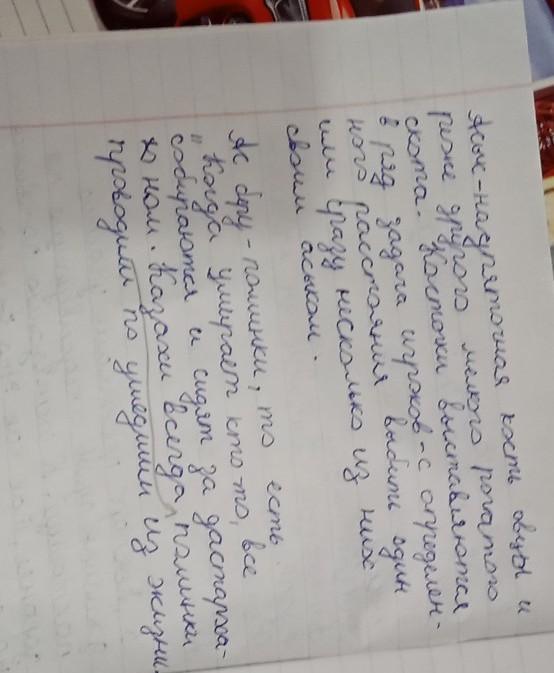 Асык-надпяточная кость овцы и
реже другого мелкого рогатого
скота. Косточки выставляются
в ряд задача игроков-с определен-
ного расстояния выбить один
или сразу несколько из них
своим асыком.
Ас беру-поминки, то есть
"Когда умирает кто-то, все
собираются и сидят за дастарха-
ном. Казахи всегда поминки
проводили по ушедшим из жизни.